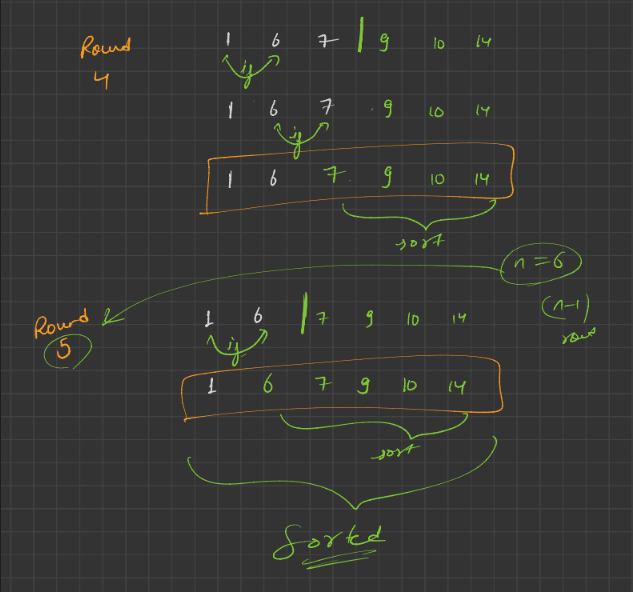 Round 1 6 7 | 9 10 14
4
if
1 6 7 9 10 14
if
1 6 7 9 10 14
sort
n = 6
(n-1)
Round 1 6 | 7 9 10 14
5
if
1 6 7 9 10 14
sort
Sorted